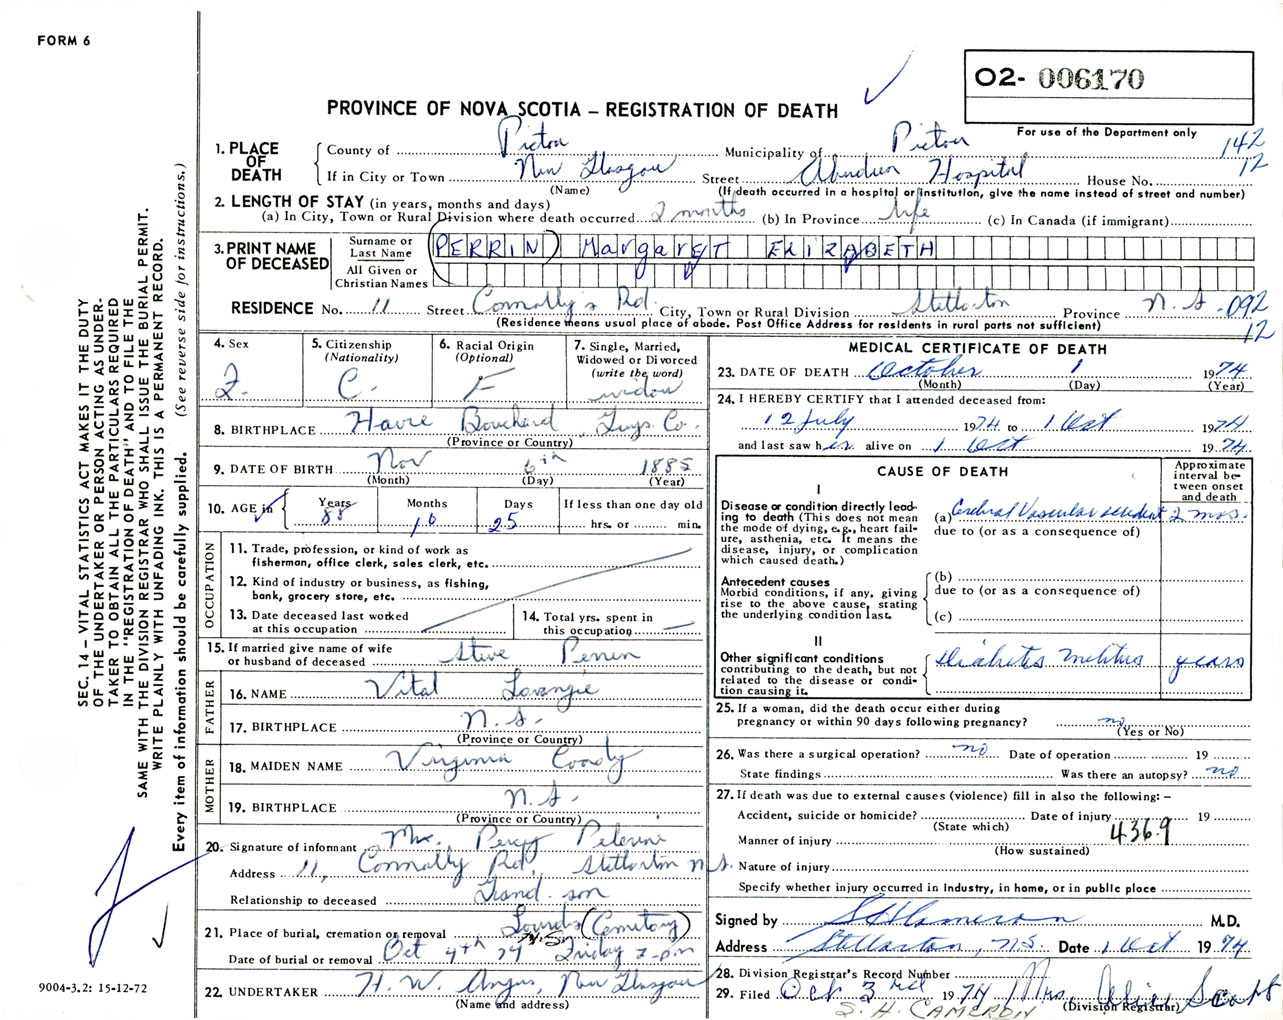 FORM 6
O2- 006170
PROVINCE OF NOVA SCOTIA – REGISTRATION OF DEATH
For use of the Department only
142
12
1. PLACE OF DEATH
County of Pictou Municipality of Pictou
If in City or Town New Glasgow Street Aberdeen Hospital House No.
(Name) (If death occurred in a hospital or institution, give the name instead of street and number)
2. LENGTH OF STAY (in years, months and days)
(a) In City, Town or Rural Division where death occurred 2 months (b) In Province life (c) In Canada (if immigrant)
3. PRINT NAME OF DECEASED
Surname or Last Name PERRIN Margaret ELIZABETH
All Given or Christian Names
RESIDENCE No. 11 Street Connolly's Rd. City, Town or Rural Division Stellarton Province N.S. 092
12
(Residence means usual place of abode. Post Office Address for residents in rural parts not sufficient)
4. Sex
F.
5. Citizenship (Nationality)
C.
6. Racial Origin (Optional)
F
7. Single, Married, Widowed or Divorced (write the word)
widow
8. BIRTHPLACE Havre Bouchard Guys. Co.
(Province or Country)
9. DATE OF BIRTH Nov 6th 1885
(Month) (Day) (Year)
10. AGE in Years 88 Months 10 Days 25 If less than one day old hrs. or min.
OCCUPATION
11. Trade, profession, or kind of work as fisherman, office clerk, sales clerk, etc.
12. Kind of industry or business, as fishing, bank, grocery store, etc.
13. Date deceased last worked at this occupation
14. Total yrs. spent in this occupation
15. If married give name of wife or husband of deceased Steve Perrin
FATHER
16. NAME Vital
17. BIRTHPLACE N.S.
(Province or Country)
MOTHER
18. MAIDEN NAME Virginia Coady
19. BIRTHPLACE N.S.
(Province or Country)
20. Signature of informant Mr. Percy Pelerine
Address 11, Connolly Rd, Stellarton N.S.
Relationship to deceased Grand-son
21. Place of burial, cremation or removal Lourdes (Cemetery) N.S.
Date of burial or removal Oct 4th 74 Friday 2-pm
22. UNDERTAKER H. W. Angus, New Glasgow
(Name and address)
MEDICAL CERTIFICATE OF DEATH
23. DATE OF DEATH October 1 1974
(Month) (Day) (Year)
24. I HEREBY CERTIFY that I attended deceased from:
12 July 1974 to 1 Oct 1974
and last saw her alive on 1 Oct 1974
CAUSE OF DEATH
Approximate interval between onset and death
I
Disease or condition directly leading to death (This does not mean the mode of dying, e.g., heart failure, asthenia, etc. It means the disease, injury, or complication which caused death.)
(a) Cerebral Vascular accident 2 mos.
due to (or as a consequence of)
Antecedent causes
Morbid conditions, if any, giving rise to the above cause, stating the underlying condition last.
(b)
due to (or as a consequence of)
(c)
II
Other significant conditions contributing to the death, but not related to the disease or condition causing it.
Diabetes mellitus years
25. If a woman, did the death occur either during pregnancy or within 90 days following pregnancy? no
(Yes or No)
26. Was there a surgical operation? no Date of operation 19
State findings Was there an autopsy? no
27. If death was due to external causes (violence) fill in also the following: –
Accident, suicide or homicide? Date of injury 19
(State which)
Manner of injury 436.9
(How sustained)
Nature of injury
Specify whether injury occurred in Industry, in home, or in public place
Signed by S H Cameron M.D.
Address Stellarton, N.S. Date 1 Oct 1974
28. Division Registrar's Record Number
29. Filed Oct 3rd 1974 Mrs. Alice Scott
(Division Registrar)
S. H. CAMERON
SEC. 14 – VITAL STATISTICS ACT MAKES IT THE DUTY
OF THE UNDERTAKER OR PERSON ACTING AS UNDER-
TAKER TO OBTAIN ALL THE PARTICULARS REQUIRED
IN THE "REGISTRATION OF DEATH" AND TO FILE THE
SAME WITH THE DIVISION REGISTRAR WHO SHALL ISSUE THE BURIAL PERMIT.
WRITE PLAINLY WITH UNFADING INK. THIS IS A PERMANENT RECORD.
Every item of information should be carefully supplied. (See reverse side for instructions.)
9004-3.2: 15-12-72